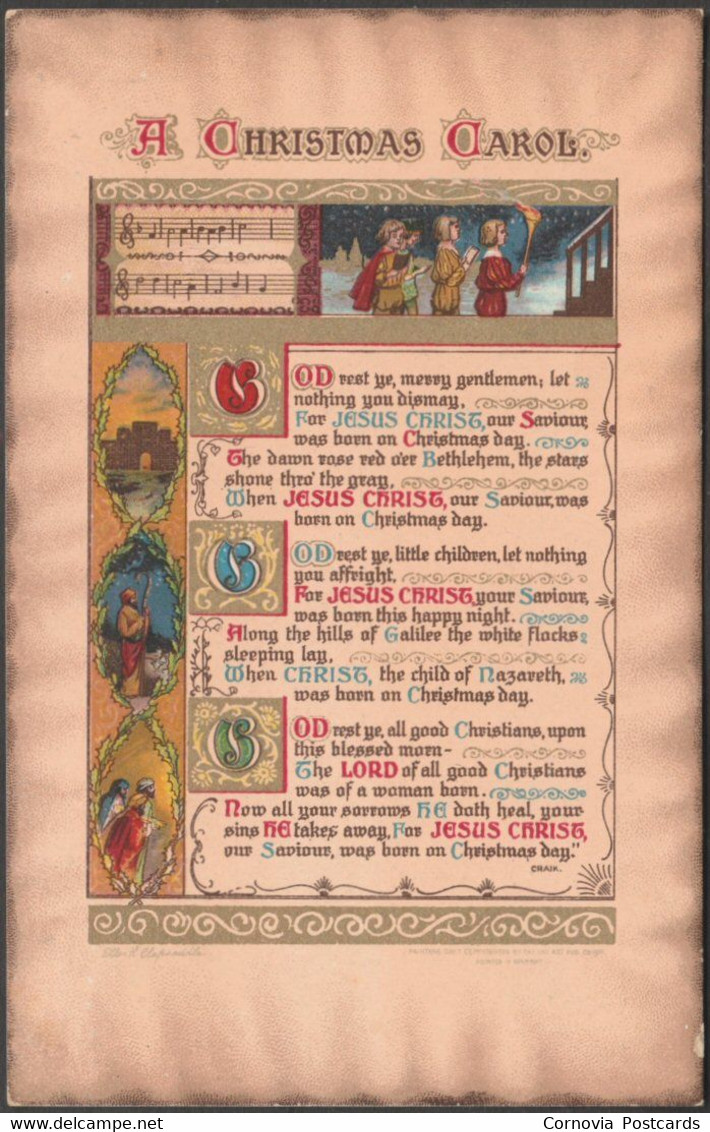 A CHRISTMAS CAROL.
GOD rest ye, merry gentlemen; let
nothing you dismay,
For JESUS CHRIST, our Saviour,
was born on Christmas day.
The dawn rose red o'er Bethlehem, the stars
shone thro' the gray,
When JESUS CHRIST, our Saviour, was
born on Christmas day.
GOD rest ye, little children, let nothing
you affright,
For JESUS CHRIST, your Saviour,
was born this happy night.
Along the hills of Galilee the white flocks
sleeping lay,
When CHRIST, the child of Nazareth,
was born on Christmas day.
GOD rest ye, all good Christians, upon
this blessed morn-
The LORD of all good Christians
was of a woman born.
Now all your sorrows HE doth heal, your
sins HE takes away, For JESUS CHRIST,
our Saviour, was born on Christmas day."
CRAIK.
www.delcampe.net
Cornovia Postcards